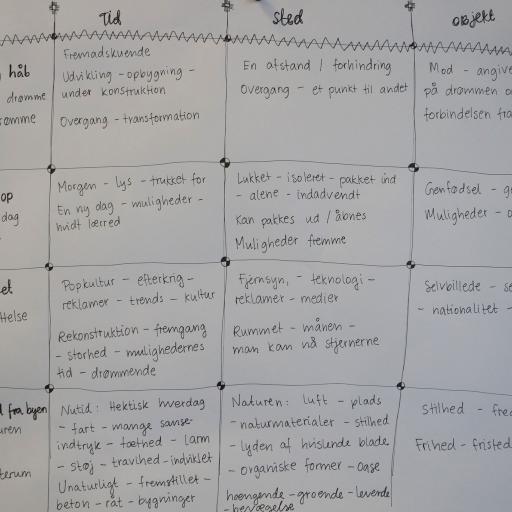 Tid
sted
objekt
håb
drømme
drømme
Fremadskuende
Udvikling - opbygning -
under konstruktion
Overgang - transformation
En afstand / forhindring
Overgang - et punkt til andet
Mod - angive
på drømmen o
forbindelsen fra
op
dag
Morgen - lys - trukket for
En ny dag - muligheder -
hvidt lærred
Lukket - isoleret - pakket ind
- alene - indadvendt
Kan pakkes ud / åbnes
Muligheder fremme
Genfødsel - g
Muligheder - o
et
telse
Popkultur - efterkrig -
reklamer - trends - kultur
Rekonstruktion - fremgang
- storhed - mulighedernes
tid - drømmende
Fjernsyn, - teknologi -
reklamer - medier
Rummet - månen -
man kan nå stjernerne
Selvbillede - se
- nationalitet -
fra byen
uren
terum
Nutid: Hektisk hverdag
- fart - mange sanse-
indtryk - tæthed - larm
- støj - travlhed - indviklet
Unaturligt - fremstillet -
beton - råt - bygninger
Naturen: luft - plads
- naturmaterialer - stilhed
- lyden af hvislende blade
- organiske former - oase
hængende - groende - levende
- bevægelse
Stilhed - fred
Frihed - fristed